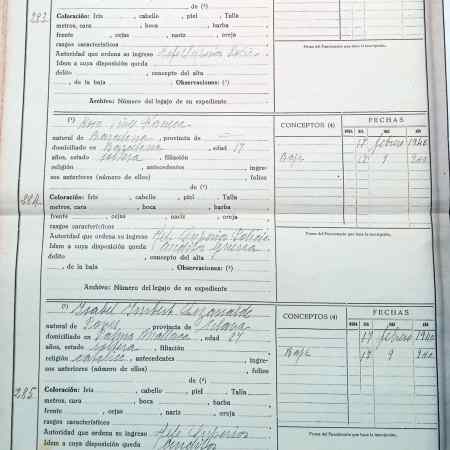 de (²)
283.
Coloración: Iris, cabello, piel, Talla
metros, cara, boca, barba
frente, cejas, nariz, oreja
rasgos característicos
Autoridad que ordena su ingreso Jefe Superior
Idem a cuya disposición queda
delito, concepto del alta
, de la baja. Observaciones: (³)
Archivo: Número del legajo de su expediente
Firma del Funcionario que hace la inscripción.
(¹) Rosa
natural de Barcelona, provincia de —
domiciliado en Barcelona, edad 19
años, estado soltera, filiación
religión, antecedentes, ingre-
sos anteriores (número de ellos), folios
de (²)
CONCEPTOS (4) FECHAS
HORA DÍA MES AÑO
17 febrero 1940
Baja 18 9 940
284.
Coloración: Iris, cabello, piel, Talla
metros, cara, boca, barba
frente, cejas, nariz, oreja
rasgos característicos
Autoridad que ordena su ingreso Jefe Superior Policia
Idem a cuya disposición queda Auditor Guerra
delito, concepto del alta
, de la baja. Observaciones: (³)
Archivo: Número del legajo de su expediente
Firma del Funcionario que hace la inscripción.
(¹) Isabel Imbert
natural de, provincia de
domiciliado en Palma Mallorca, edad 27
años, estado soltera, filiación
religión catolica, antecedentes, ingre-
sos anteriores (número de ellos), folios
de (²)
CONCEPTOS (4) FECHAS
HORA DÍA MES AÑO
17 febrero 1940
Baja 18 9 940
285.
Coloración: Iris, cabello, piel, Talla
metros, cara, boca, barba
frente, cejas, nariz, oreja
rasgos característicos
Autoridad que ordena su ingreso Jefe Superior
Idem a cuya disposición queda Auditor
Firma del Funcionario que hace la inscripción.